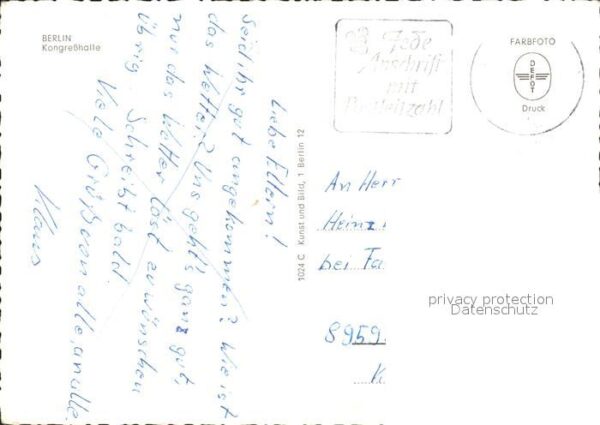 BERLIN
Kongreßhalle
Liebe Eltern!
Seid ihr gut angekommen? Wie ist
das Wetter? Uns geht's ganz gut,
nur das Wetter läst zu wünschen
übrig. Schreibt bald
Viele Grüße von alle, an alle
Klaus
Jede
Anschrift
mit
Postleitzahl
FARBFOTO
DEFOT
Druck
1024 C Kunst und Bild, 1 Berlin 12
An Herr
Heinz
bei Fa
8959
K
privacy protection
Datenschutz